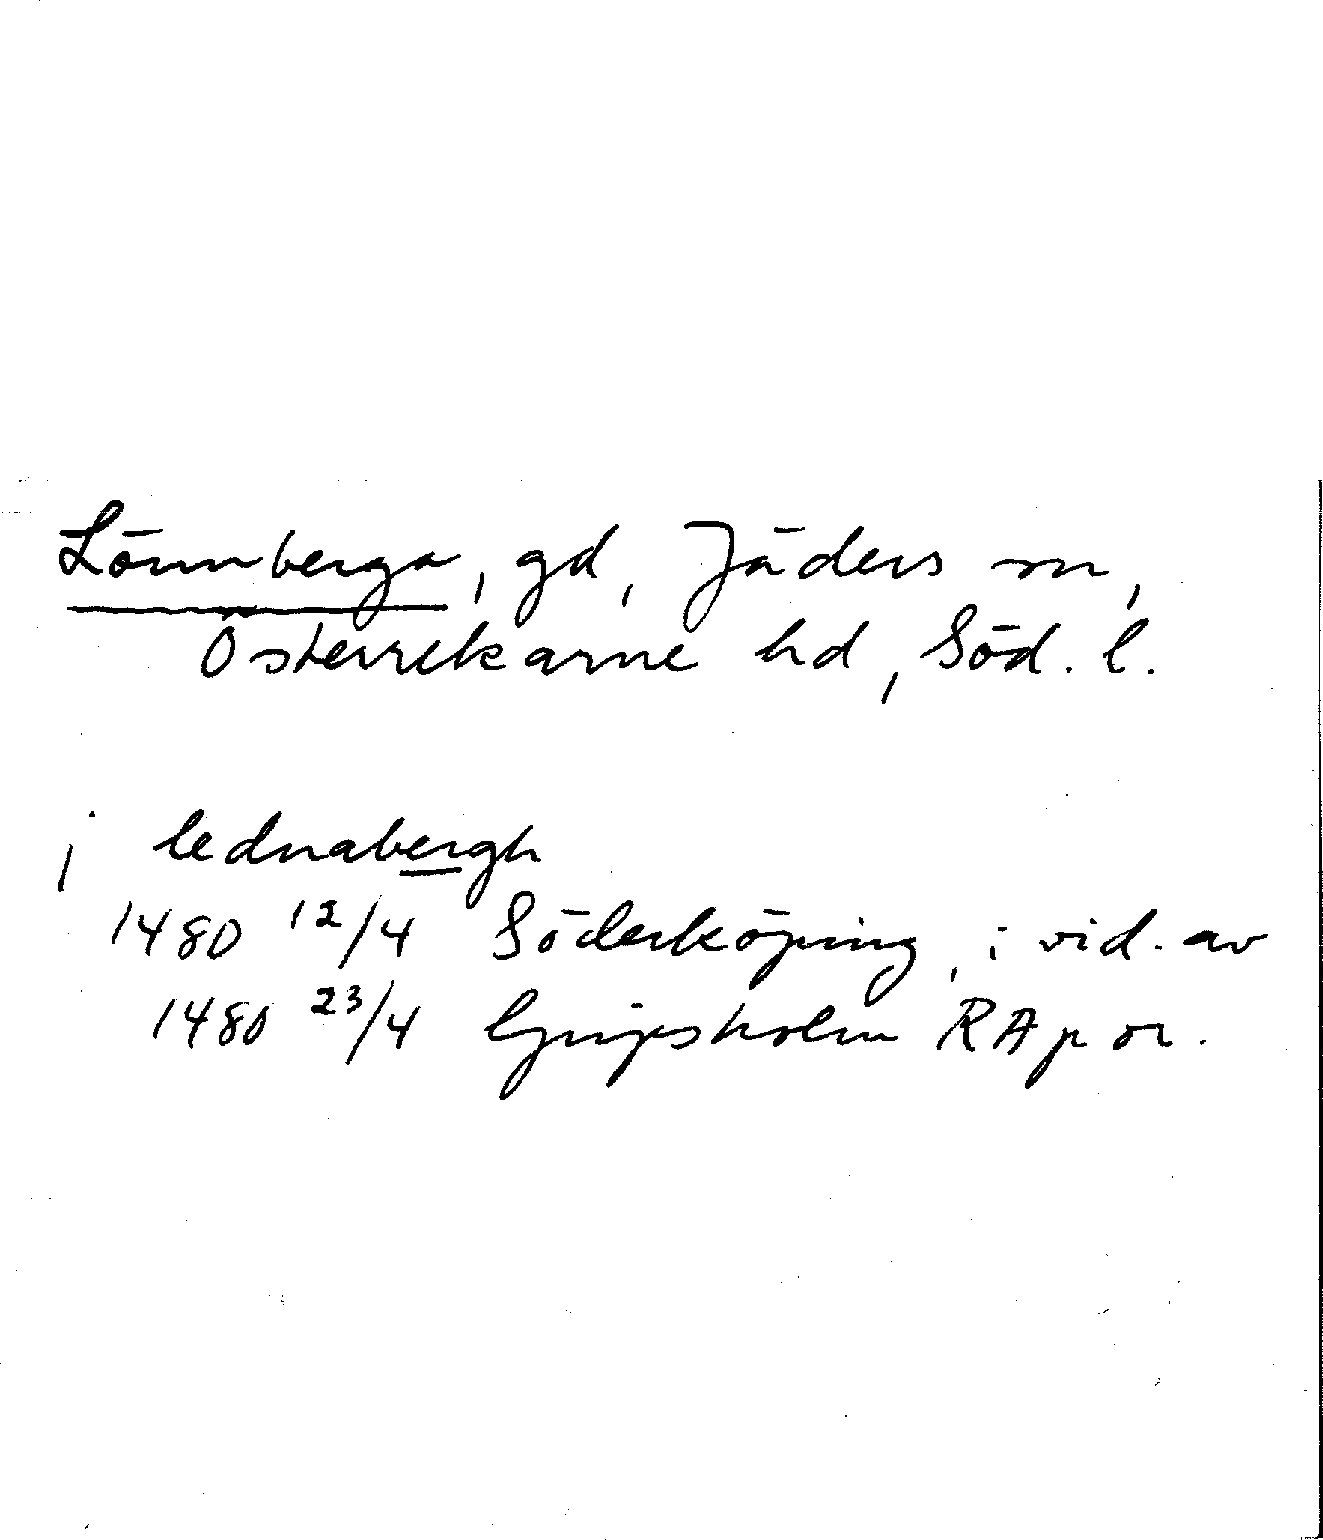 Lönnberga, gd, Jäders sn,
Österrekarne hd, Söd. l.
j lednabergh
1480 12/4 Söderköping, i vid. av
1480 23/4 Gripsholm RAp or.